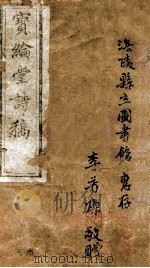 涪陵縣立圖書館 惠存
李芳 敬贈
寶綸堂詩稿